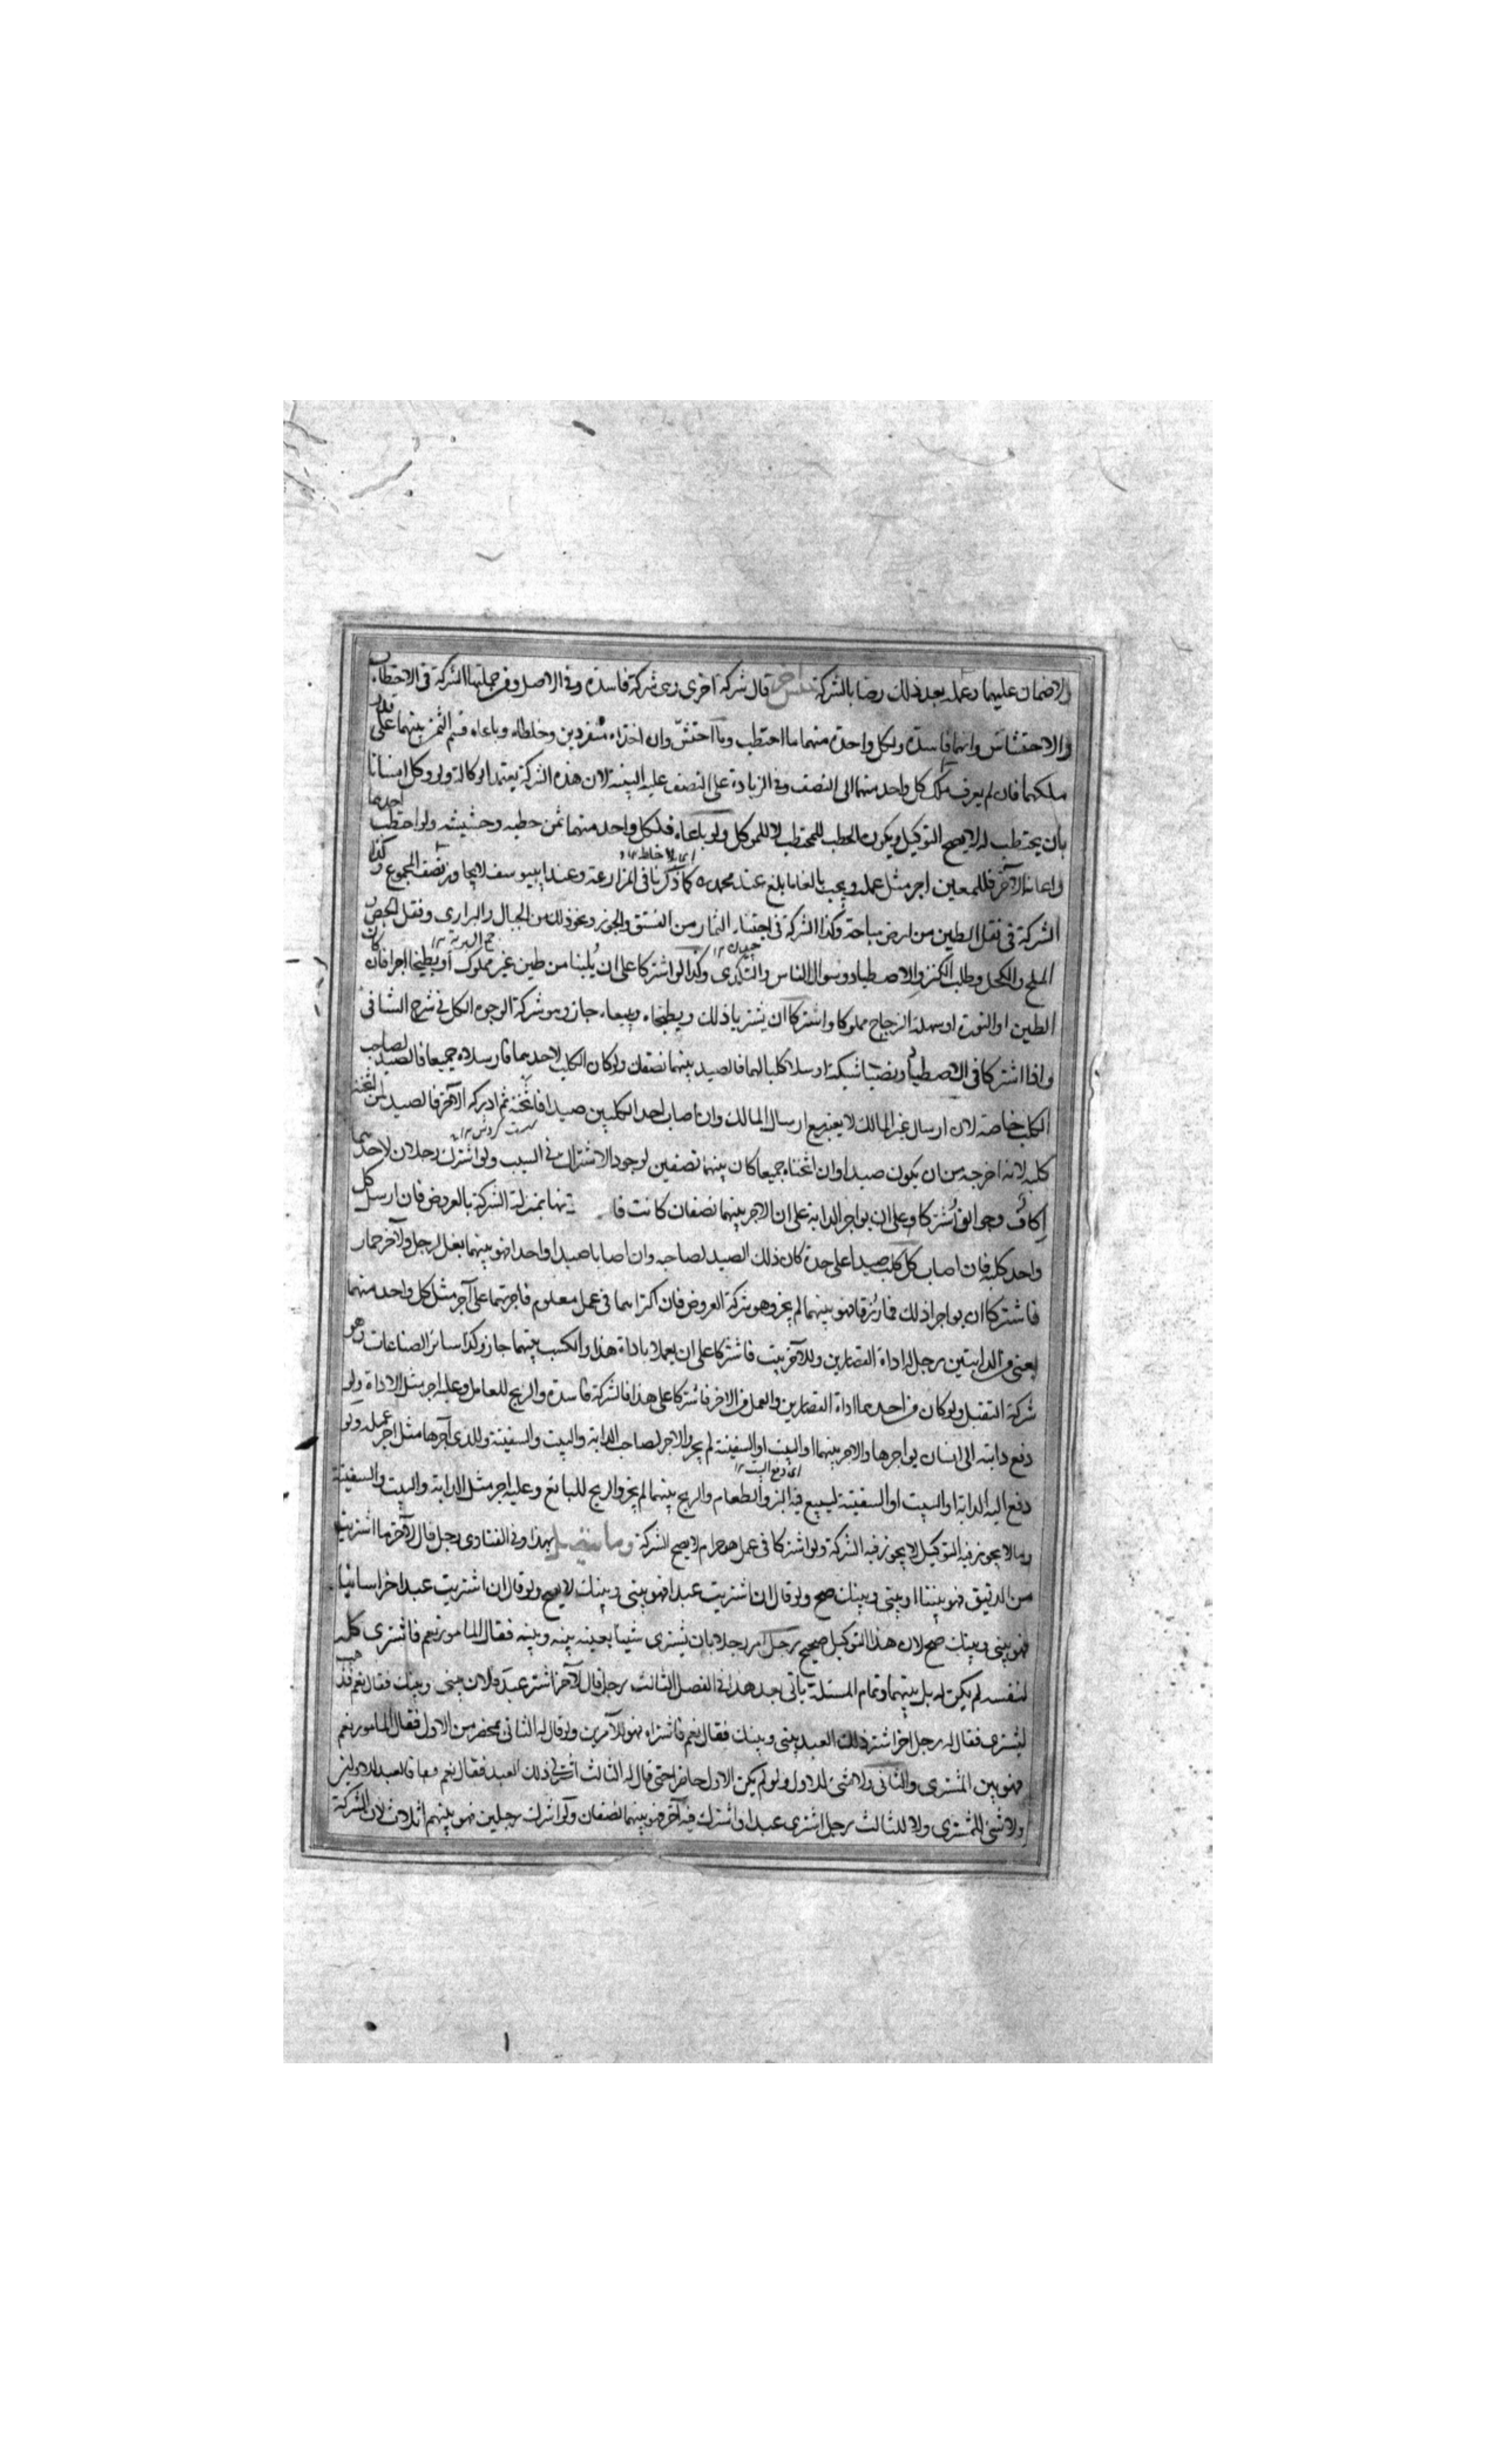 ولاضمان عليهما وعمله بعد ذلك رضا بالشركة جنس آخر قال شركة اخرى وهى شركة فاسدة وفى الاصل وفى جملتها الشركة فى الاحتطاب
والاحتشاش وانهما فاسدة ولكل واحدة منهما ما احتطب وما احتشّ وان اخذاه منفردين وخلطاه وباعاه قسم الثمن بينهما على قدر
ملكهما فان لم يعرف ملك كل واحد منهما الى النصف وفى الزيادة على النصف عليه البينة لان هذه الشركة يعتمد الوكالة ولو وكل انسانا
بان يحتطب له لا يصح التوكيل ويكون الحطب للمحتطب لا للموكل ولو باعاه فلكل واحد منهما ثمن حطبه وحشيشه ولو احتطب احدهما
واعانه الآخر فللمعين اجر مثل عمله ويجب بالغا ما بلغ عند محمد ره كما ذكرنا فى المزارعة وعند ابييوسف لا يجاوز نصف المجموع وكذا
الشركة فى نقل الطين من ارض مباحة وكذا الشركة فى اجتناء الثمار من الفستق والجوز ونحو ذلك من الجبال والبرارى ونقل الجص
الملح والكحل وطلب الكنز والاصطياد وسوال الناس والتكدى وكذا لو اشتركا على ان يُلبنا من طين غير مملوك او يطبخا اجرا فان كان
الطين او النورة او سهلة الزجاج مملوكا واشتركا ان يشتريا ذلك ويطبخاه ويبيعاه جاز وهو شركة الوجوه الكل فى شرح الشافى
واذا اشتركا فى الاصطياد ونصبا شبكة او ارسلا كلبا لهما فالصيد بينهما نصفان ولو كان الكلب لاحدهما فارسلاه جميعا فالصيد لصاحب
الكلب خاصة لان ارسال غير المالك لا يعتبر مع ارسال المالك وان اصاب احد الكلبين صيدا فاثخنه ثم ادركه الآخر فالصيد لمن اثخنه
كلبه لانه اخرجه من ان يكون صيدا وان اثخناه جميعا كان بينهما نصفين لوجود الاشتراك فى السبب ولو اشترك رجلان لاحدهما
اكاف وجوالق اشتركا وعلى ان يواجر الدابة على ان الاجر بينهما نصفان كانت فا تها بمنزلة الشركة بالعروض فان ارسل كل
واحد كلبه فان اصاب كل كلب صيدا على حدة كان ذلك الصيد لصاحبه وان اصابا صيدا واحدا فهو بينهما بغل لرجل ولآخر حمار
فاشتركا ان يواجرا ذلك فما رزقا فهو بينهما لم يجز وهو شركة العروض فان اكتراهما فى عمل معلوم فاجرتهما على اجر مثل كل واحد منهما
يعنى من الدابتين رجل له اداة القصارين وللآخر بيت فاشتركا على ان يعملا باداة هذا والكسب بينهما جاز وكذا سائر الصناعات وهو
شركة التقبل ولو كان من احدهما اداة القصارين والعمل من الاخر فاشتركا على هذا فالشركة فاسدة والربح للعامل وعليه اجر مثل الاداة ولو
دفع دابته الى انسان يواجرها والاجر بينهما او البيت او السفينة لم يجز والاجر لصاحب الدابة والبيت والسفينة وللذى آجرها مثل اجر عمله ولو
دفع اليه الدابة او البيت او السفينة ليبيع فيه البز والطعام والربح بينهما لم يجز والربح للبائع وعليه اجر مثل الدابة والبيت والسفينة
وما لا يجوز فيه التوكيل لا يجوز فيه الشركة ولو اشتركا فى عمل هو حرام لا يصح الشركة وما يتصل بهذا وفى الفتاوى رجل قال لآخر ما اشتريت
من الدقيق فهو بيننا او بينى وبينك صح ولو قال ان اشتريت عبدا فهو بينى وبينك لا يصح ولو قال ان اشتريت عبدا خراسانيا
فهو بينى وبينك صح لان هذا التوكيل صحيح رجل امر رجلا بان يشترى شيئا بعينه بينه وبينه فقال المامور نعم فاشترى كله
لنفسه لم يكن له بل بينهما وتمام المسئلة ياتى بعد هذا فى الفصل الثالث رجل قال لآخر اشتر عبد فلان بينى وبينك فقال نعم فذهب
ليشترى فقال له رجل اخر اشتر ذلك العبد بينى وبينك فقال نعم فاشتراه فهو للآمرين ولو قال له الثانى بمحضر من الاول فقال المامور نعم
فهو بين المشترى والثانى ولا شئ للاول ولو لم يكن الاول حاضرا حتى قال له الثالث اشتر لى ذلك العبد فقال نعم فالعبد للاولين
ولا شئ للمشترى ولا للثالث رجل اشترى عبدا واشترك فيه آخر فهو بينهما نصفان ولو اشرك رجلين فهو بينهم اثلاث لان الشركة